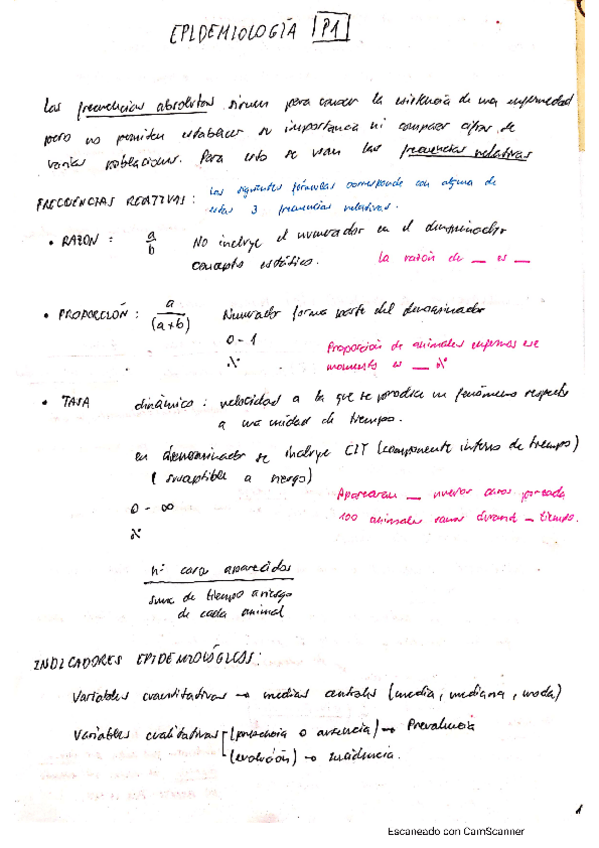 EPIDEMIOLOGÍA P1
Las frecuencias absolutas sirven para conocer la existencia de una enfermedad
pero no permiten establecer su importancia ni comparar cifras de
varias poblaciones. Para esto se usan las frecuencias relativas
FRECUENCIAS RELATIVAS: Las siguientes fórmulas corresponde con alguna de
estas 3 frecuencias relativas.
• RAZÓN: a/b No incluye el numerador en el denominador
concepto estático. La razón de __ es __
• PROPORCIÓN: a/(a+b) Numerador forma parte del denominador
0 - 1
Proporción de animales enfermos ese
momento es __ %
• TASA dinámico: velocidad a la que se produce un fenómeno respecto
a una unidad de tiempo.
en denominador se incluye CIT (componente interno de tiempo)
(susceptible a riesgo)
Aparecerán __ nuevos casos por cada
100 animales sanos durante __ tiempo.
0 - ∞
nº casos aparecidos
suma de tiempo a riesgo
de cada animal
INDICADORES EPIDEMIOLÓGICOS:
Variables cuantitativas → medidas centrales (media, mediana, moda)
Variables cualitativas (presencia o ausencia) → Prevalencia
(evolución) → incidencia.
1
Escaneado con CamScanner